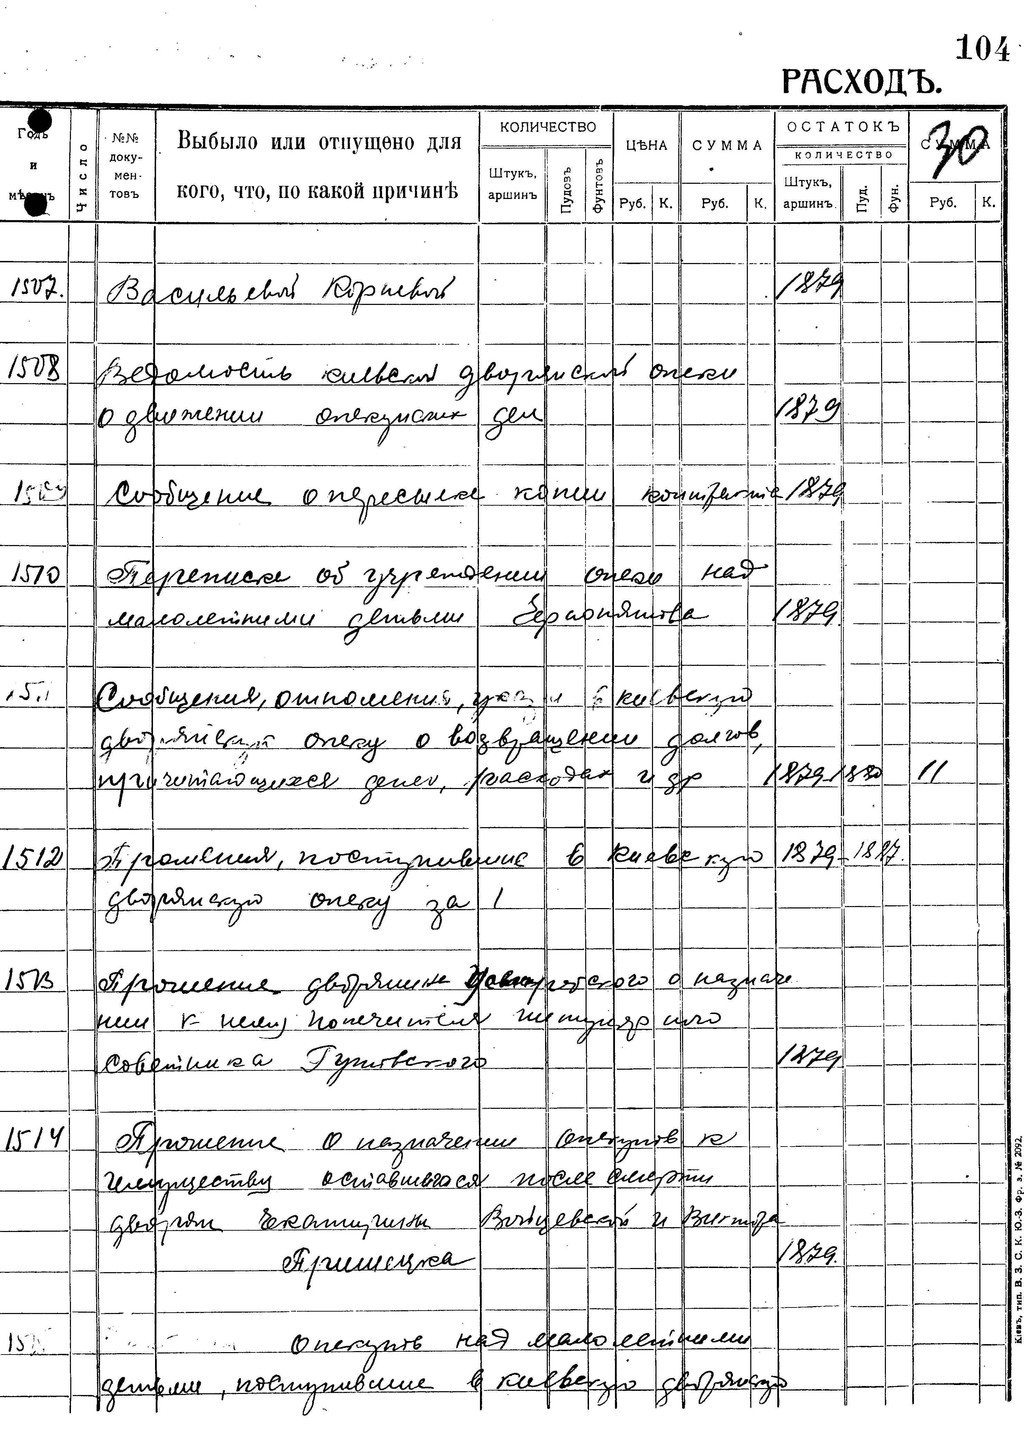 104
РАСХОДЪ.
30
Годъ и мѣсяцъ
Число
№№ доку-мен-товъ
Выбыло или отпущено для
кого, что, по какой причинѣ
КОЛИЧЕСТВО
Штукъ, аршинъ
Пудовъ
Фунтовъ
ЦѢНА
Руб. К.
СУММА
Руб. К.
ОСТАТОКЪ
КОЛИЧЕСТВО
Штукъ, аршинъ.
Пуд.
Фун.
СУММА
Руб. К.
1507. Васильевой Корневой 1879
1508 Ведомость киевской дворянской опеки
о движении опекунских дел 1879
1509 Сообщение о пересылке копии контракта 1879
1510 Переписка об учреждении опеки над
малолетними детьми 1879
Сообщения, отношения, в киевскую
дворянскую опеку о возвращении долгов,
причитающихся денег, расходах и др 1879 1880 11
1512 Прошения, поступившие в Киевскую 1879-1887.
дворянскую опеку за 1
1513 Прошение дворянина о назначе
нии к нему попечителя титулярного
советника 1879
1514 Прошение о назначении опекунов к
имуществу оставшегося после смерти
дворян Екатерины и Виктора
1879.
15 опекунов над малолетними
детьми, поступившие в киевскую дворянскую
Кіевъ, тип. В. З. С. К. Ю.-З. Фр. з. № 2092.